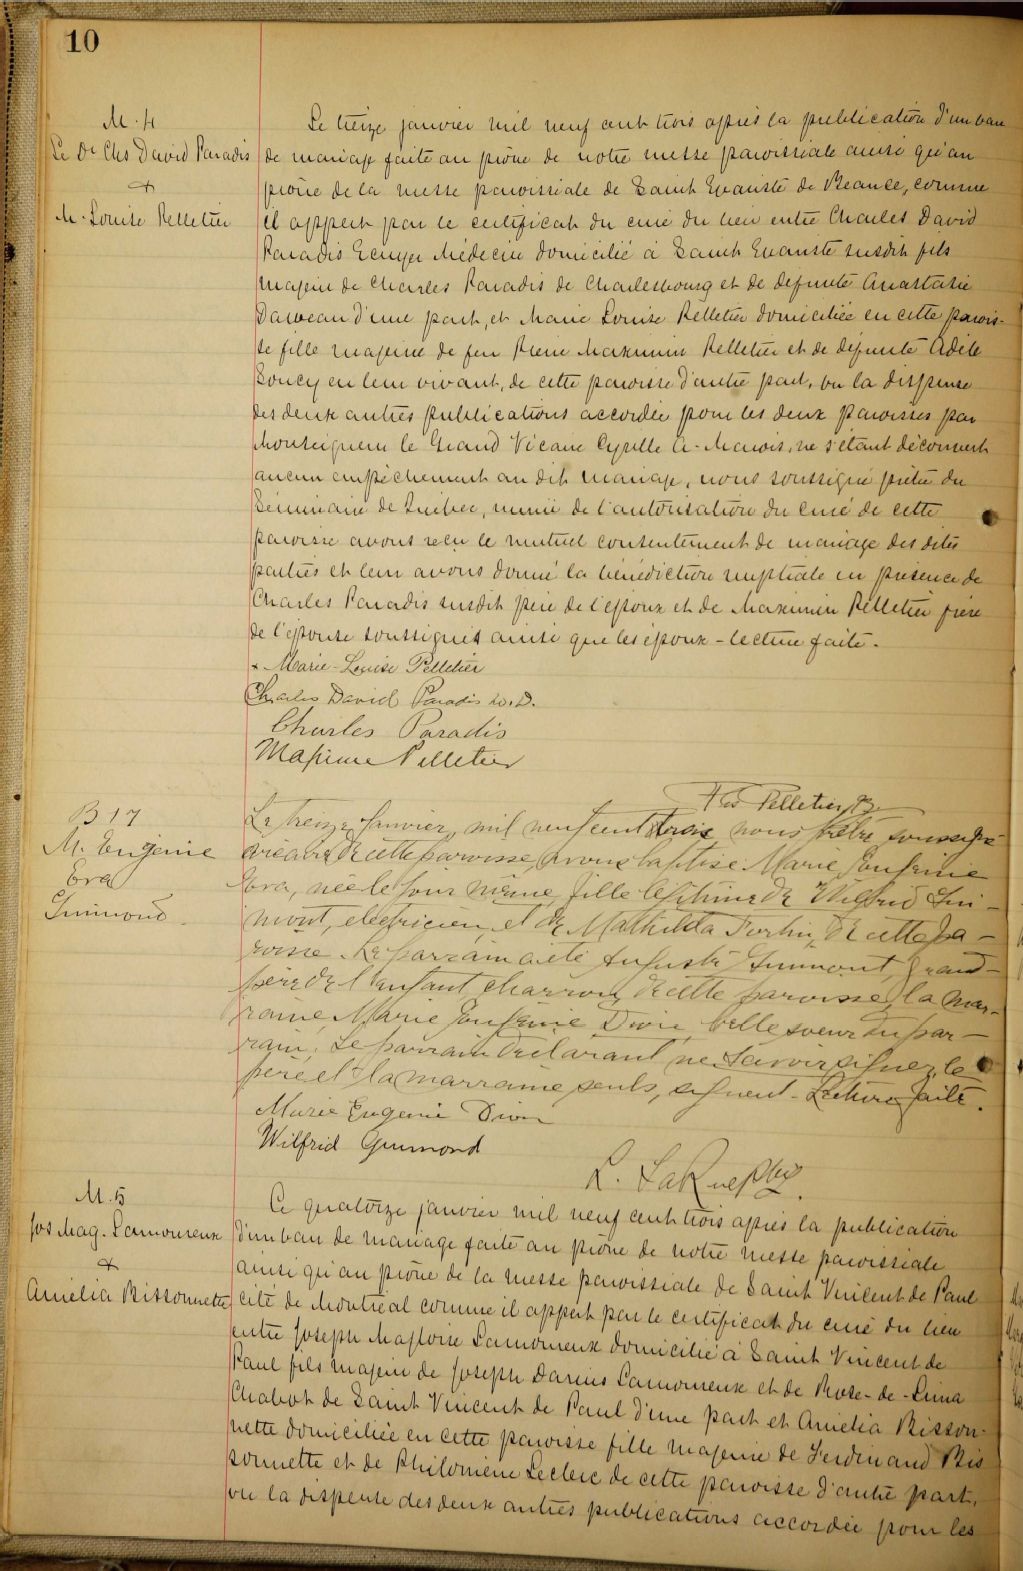 10
M. 4
Le Dr Chs David Paradis
&
M. Louise Pelletier
Le treize janvier mil neuf cent trois après la publication d'un ban
de mariage faite au prône de notre messe paroissiale ainsi qu'au
prône de la messe paroissiale de Saint Evariste de Beauce, comme
il appert par le certificat du curé du lieu entre Charles David
Paradis Ecuyer Médecin domicilié à Saint Evariste susdit fils
majeur de Charles Paradis de Charlesbourg et de défunte Anastasie
d'une part, et Marie Louise Pelletier domiciliée en cette parois-
se fille majeure de feu Pierre Maximin Pelletier et de défunte Adèle
Soucy en leur vivant, de cette paroisse d'autre part, vu la dispense
des deux autres publications accordée pour les deux paroisses par
Monseigneur le Grand Vicaire Cyrille A. Marois, ne s'étant découvert
aucun empêchement au dit mariage, nous soussigné prêtre du
Séminaire de Québec, muni de l'autorisation du curé de cette
paroisse avons reçu le mutuel consentement de mariage des dites
parties et leur avons donné la bénédiction nuptiale en présence de
Charles Paradis susdit père de l'époux et de Maximin Pelletier frère
de l'épouse soussignés ainsi que les époux - lecture faite.
Marie-Louise Pelletier
Charles David Paradis M.D.
Charles Paradis
Pelletier
Pelletier
B 17
M. Eugénie
Eva
Guimond
Le treize Janvier, mil neuf cent trois nous prêtre soussigné
vicaire de cette paroisse, avons baptisé Marie Eugénie
Eva, née le jour même, fille légitime de Wilfrid Gui-
mont, electricien, et de Mathilda Fortin, de cette pa-
roisse. Le parrain a été Auguste Guimont, grand-
père de l'enfant charron, de cette paroisse, la mar-
raine, Marie Eugénie Dion, belle soeur du par-
rain. Le parrain déclarant ne savoir signer, le
père et la marraine seuls, signent. Lecture faite.
Marie Eugenie Dion
Wilfrid Guimond
L. LaRue Ptre
M. 5
Jos Mag. Lamoureux
&
Amelia Bissonnette
Ce quatorze janvier mil neuf cent trois après la publication
d'un ban de mariage faite au prône de notre messe paroissiale
ainsi qu'au prône de la messe paroissiale de Saint Vincent de Paul
cité de Montréal comme il appert par le certificat du curé du lieu
entre Joseph Magloire Lamoureux domicilié à Saint Vincent de
Paul fils majeur de Joseph Darius Lamoureux et de Rose-de-Lima
Chabot de Saint Vincent de Paul d'une part et Amelia Bisson-
nette domiciliée en cette paroisse fille majeure de Ferdinand Bis
sonnette et de Philomène Leclerc de cette paroisse d'autre part,
vu la dispense des deux autres publications accordée pour les